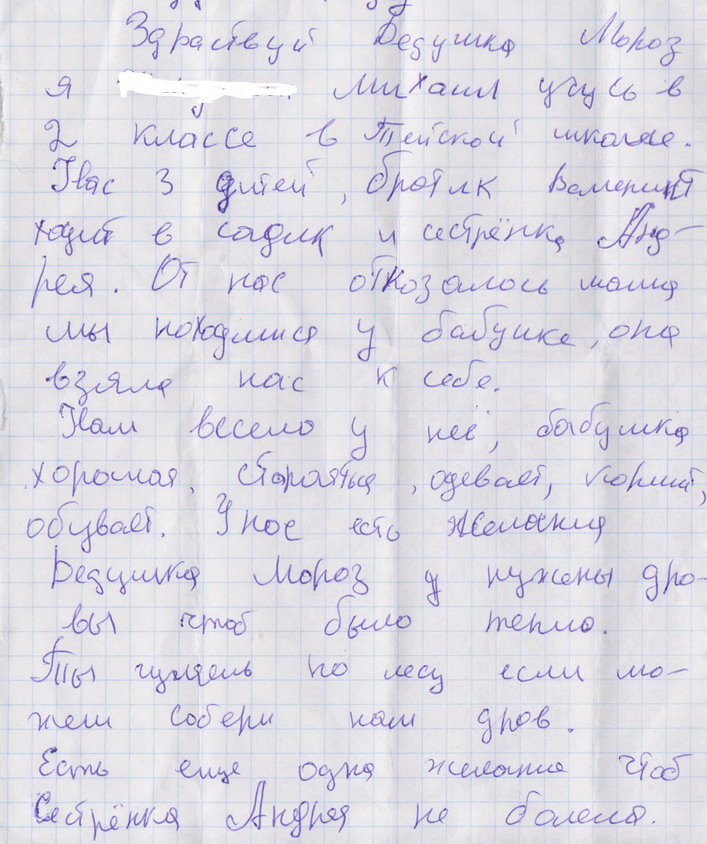 Здраствуй Дедушка Мороз
я Михаил учусь в
2 классе в Тейской школе.
Унас 3 дитей, братик Валентит
ходит в садик и сестрёнка Анд-
рея. От нас отказалось мама
мы находимся у бабушке, она
взяла нас к себе.
Нам весело у неё, бабушка
хорошая, старатья, одевает, кормит,
обувает. Унас есть желания
Дедушка Мороз у нужены дро-
вы чтоб было тепло.
Ты гуляель по лесу если мо-
жеш собери нам дров.
Есть еще одна желание чтоб
Сестрёнка Андрея не болела.